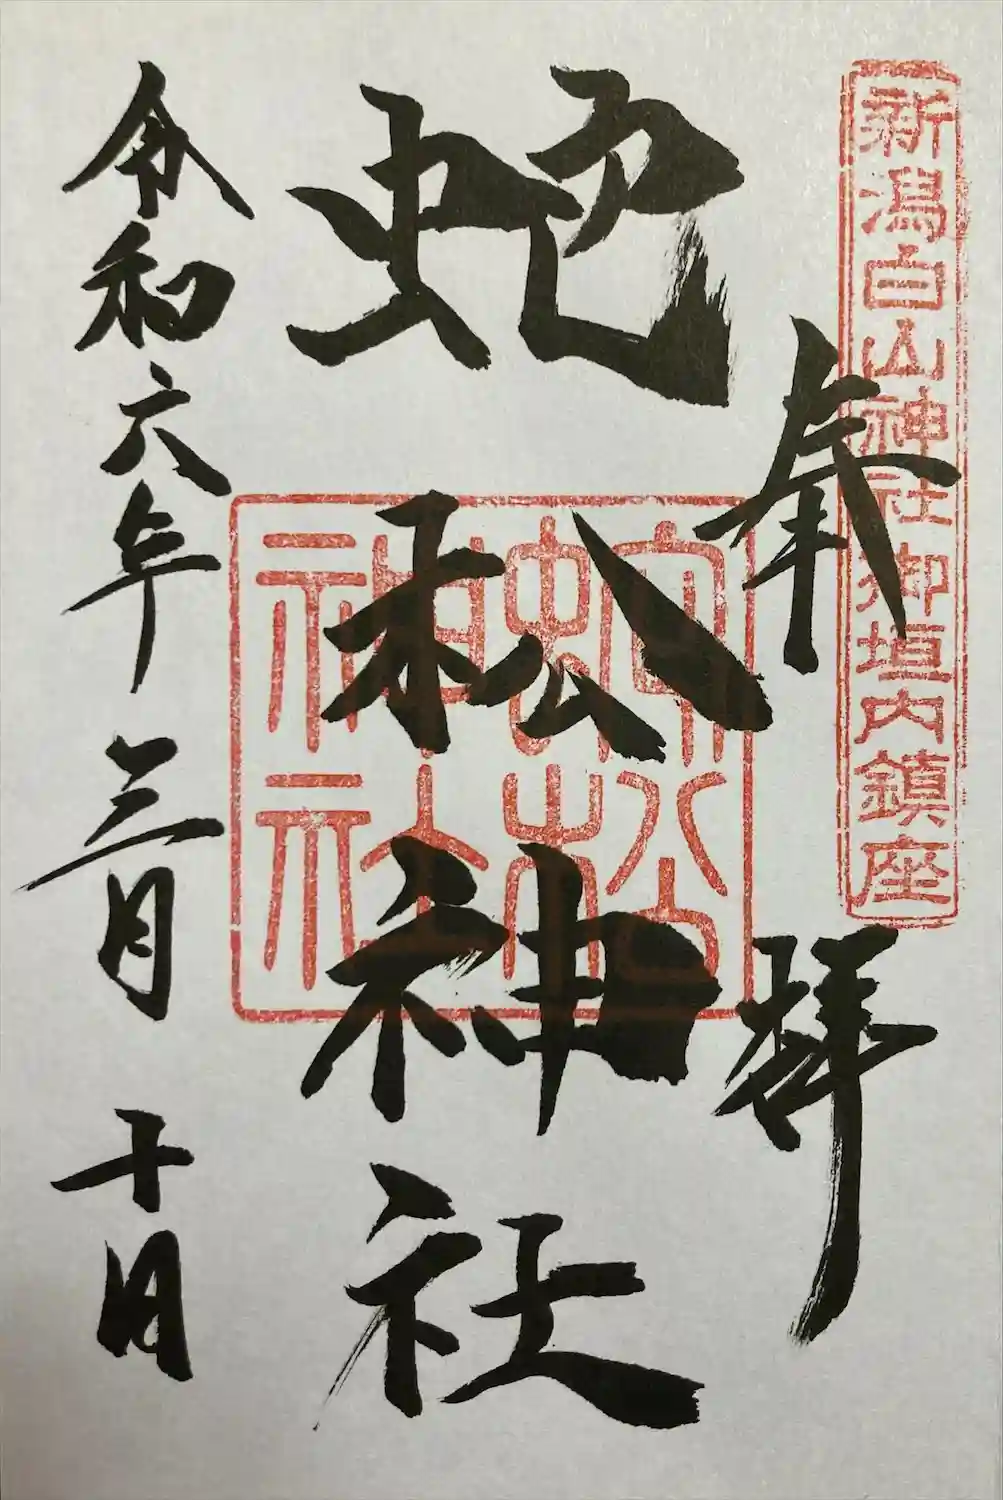 新潟白山神社御垣内鎮座
奉拝
蛇松神社
蛇松
神社
令和六年三月十日